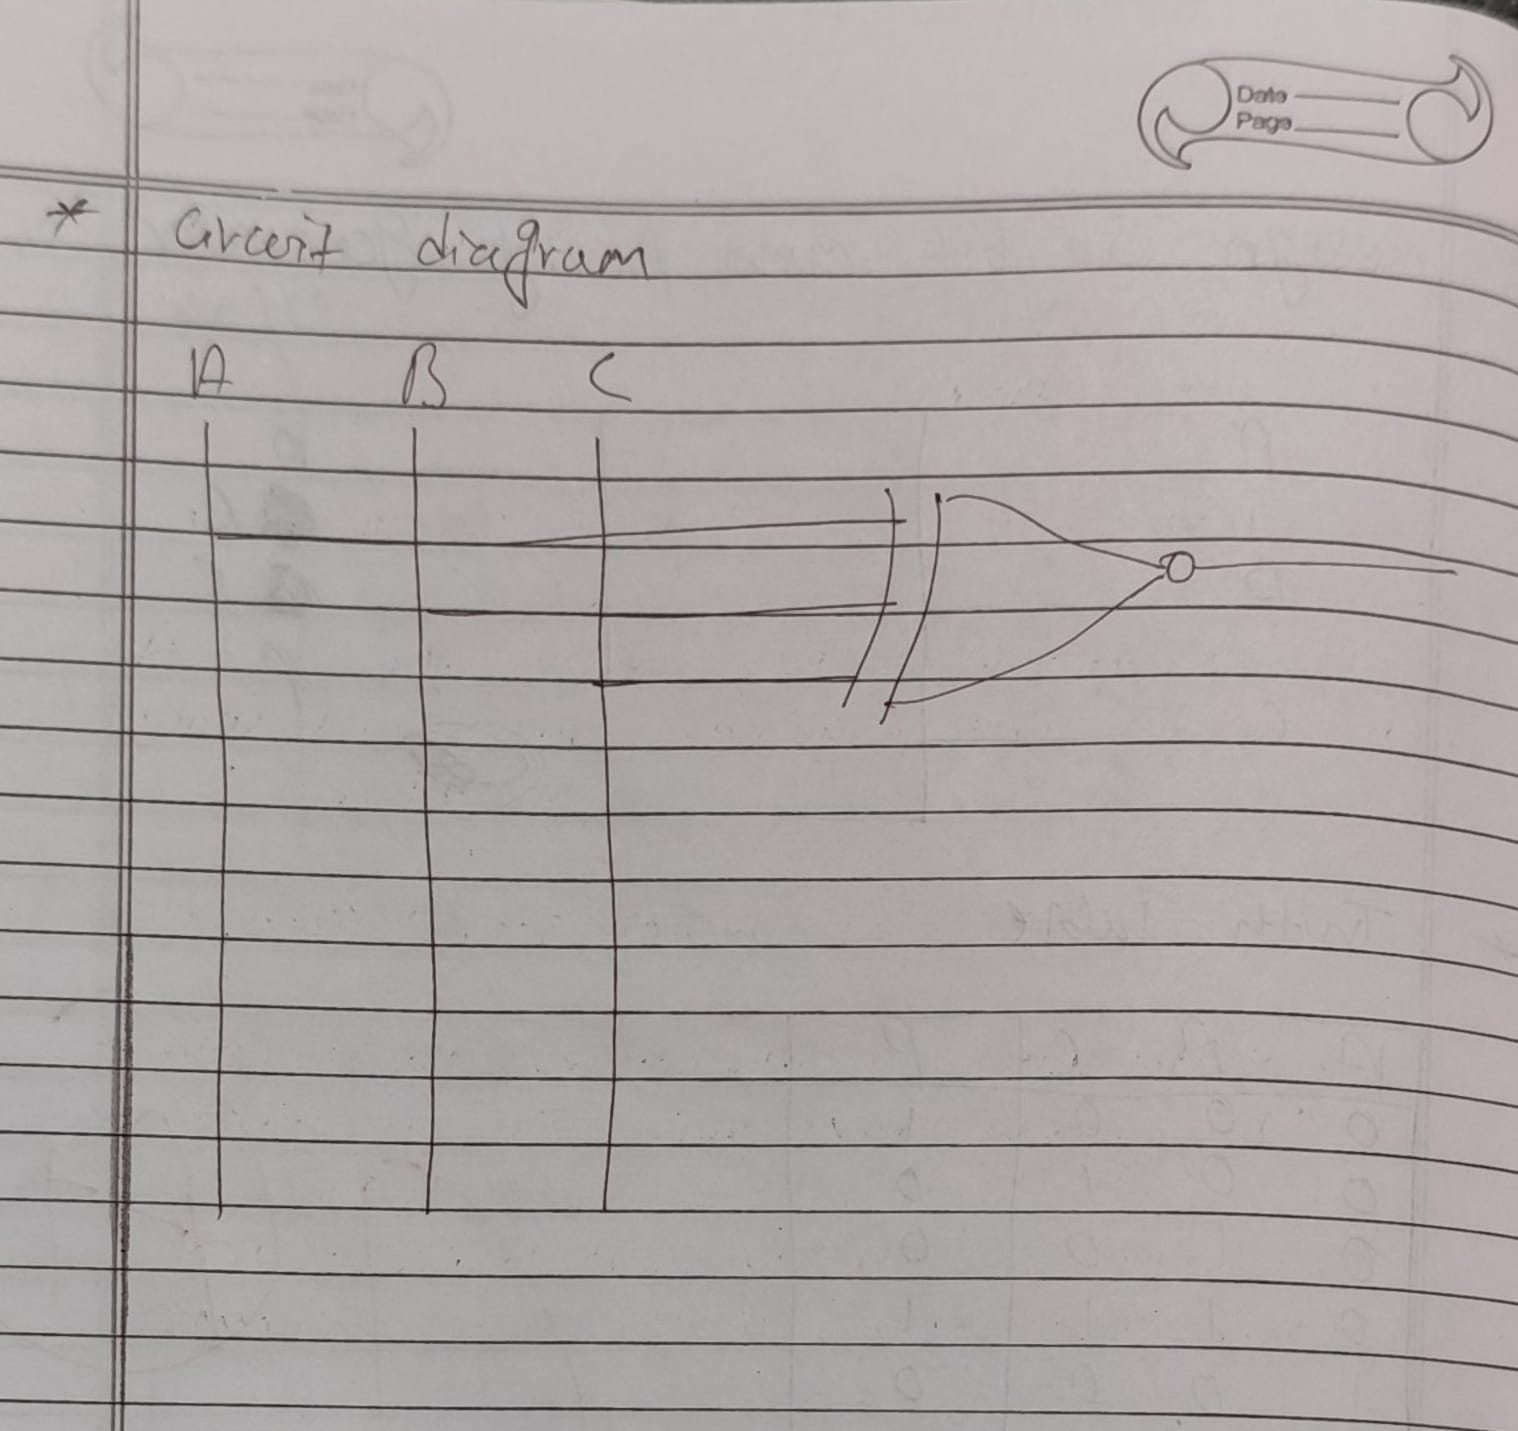 Date
Page
* Circuit diagram
A B C